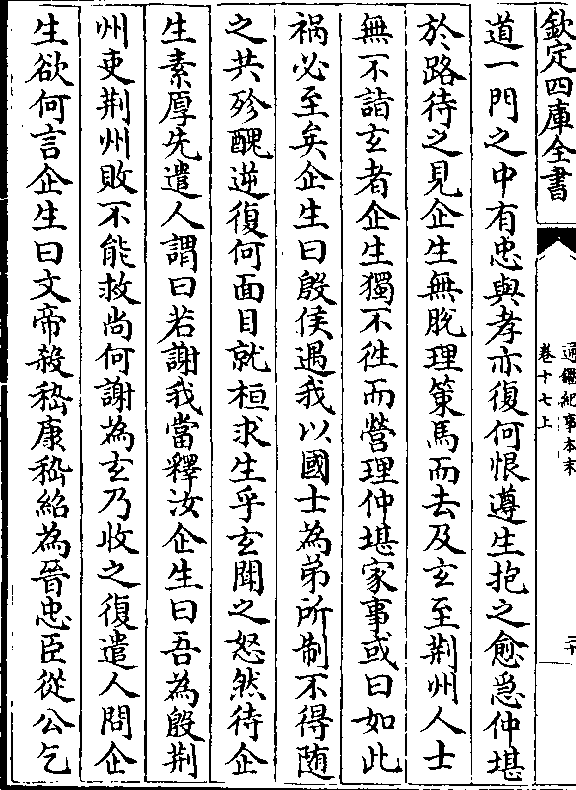 欽定四庫全書
通鑑紀事本末
卷十七上
二十
道一門之中有忠與孝亦復何恨遵生抱之愈急仲堪
於路待之見企生無脫理策馬而去及玄至荆州人士
無不詣玄者企生獨不徃而營理仲堪家事或曰如此
禍必至矣企生曰殷侯遇我以國士為弟所制不得随
之共殄醜逆復何面目就桓求生乎玄聞之怒然待企
生素厚先遣人謂曰若謝我當釋汝企生曰吾為殷荆
州吏荆州敗不能救尚何謝為玄乃收之復遣人問企
生欲何言企生曰文帝殺嵇康嵇紹為晉忠臣從公乞